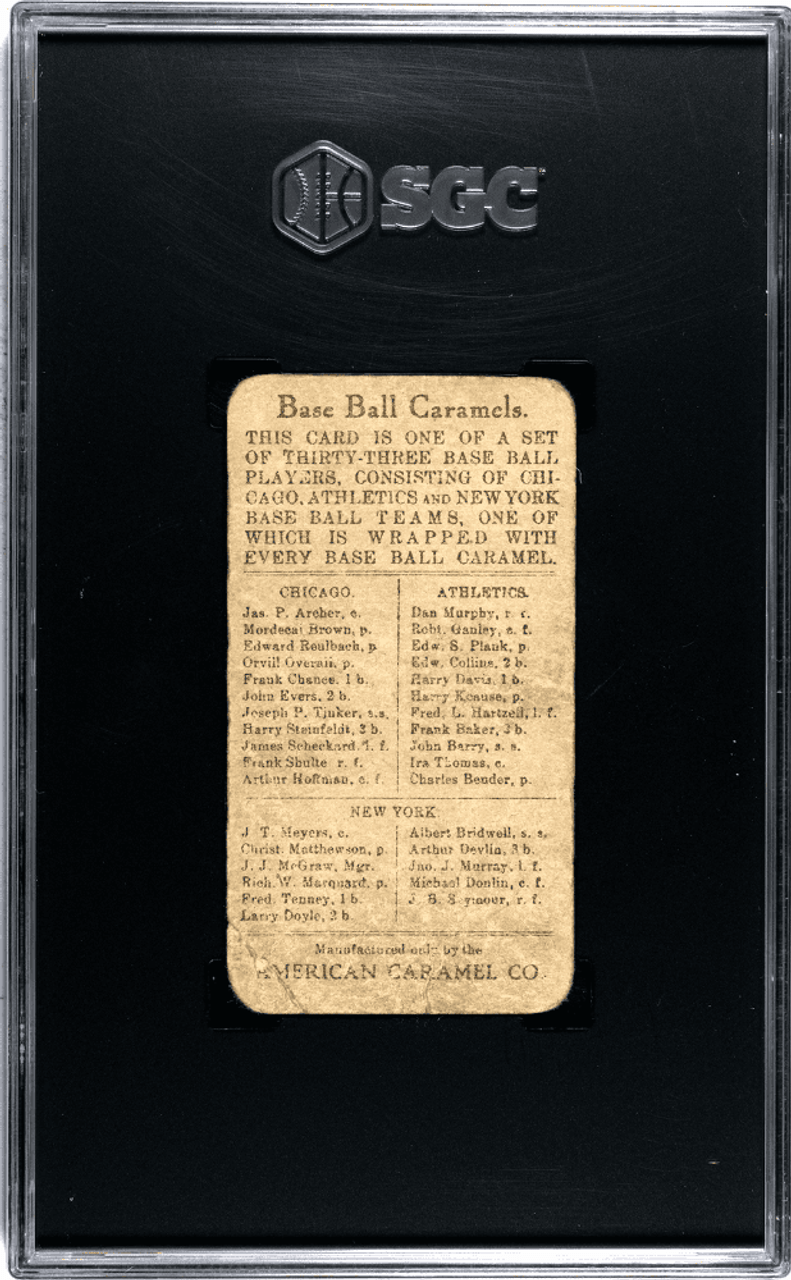 SGC
Base Ball Caramels.
THIS CARD IS ONE OF A SET
OF THIRTY-THREE BASE BALL
PLAYERS, CONSISTING OF CHI-
CAGO, ATHLETICS AND NEW YORK
BASE BALL TEAMS, ONE OF
WHICH IS WRAPPED WITH
EVERY BASE BALL CARAMEL.
CHICAGO.
Jas. P. Archer, c.
Mordecai Brown, p.
Edward Reulbach, p
Orvill Overall, p.
Frank Chance, 1 b.
John Evers, 2 b.
Joseph P. Tinker, s.s.
Harry Steinfeldt, 3 b.
James Scheckard, l. f.
Frank Shulte r. f.
Arthur Hoffman, c. f.
ATHLETICS.
Dan Murphy, r. f.
Robt. Ganley, c. f.
Edw. S. Plank, p.
Edw. Collins, 2 b.
Harry Davis, 1 b.
Harry Krause, p.
Fred. L. Hartzell, l. f.
Frank Baker, 3 b.
John Barry, s. s.
Ira Thomas, c.
Charles Bender, p.
NEW YORK.
J. T. Meyers, c.
Christ. Matthewson, p.
J. J. McGraw, Mgr.
Rich. W. Marquard, p.
Fred. Tenney, 1 b.
Larry Doyle, 2 b.
Albert Bridwell, s. s.
Arthur Devlin, 3 b.
Jno. J. Murray, l. f.
Michael Donlin, c. f.
J. B. Seymour, r. f.
Manufactured only by the
AMERICAN CARAMEL CO.